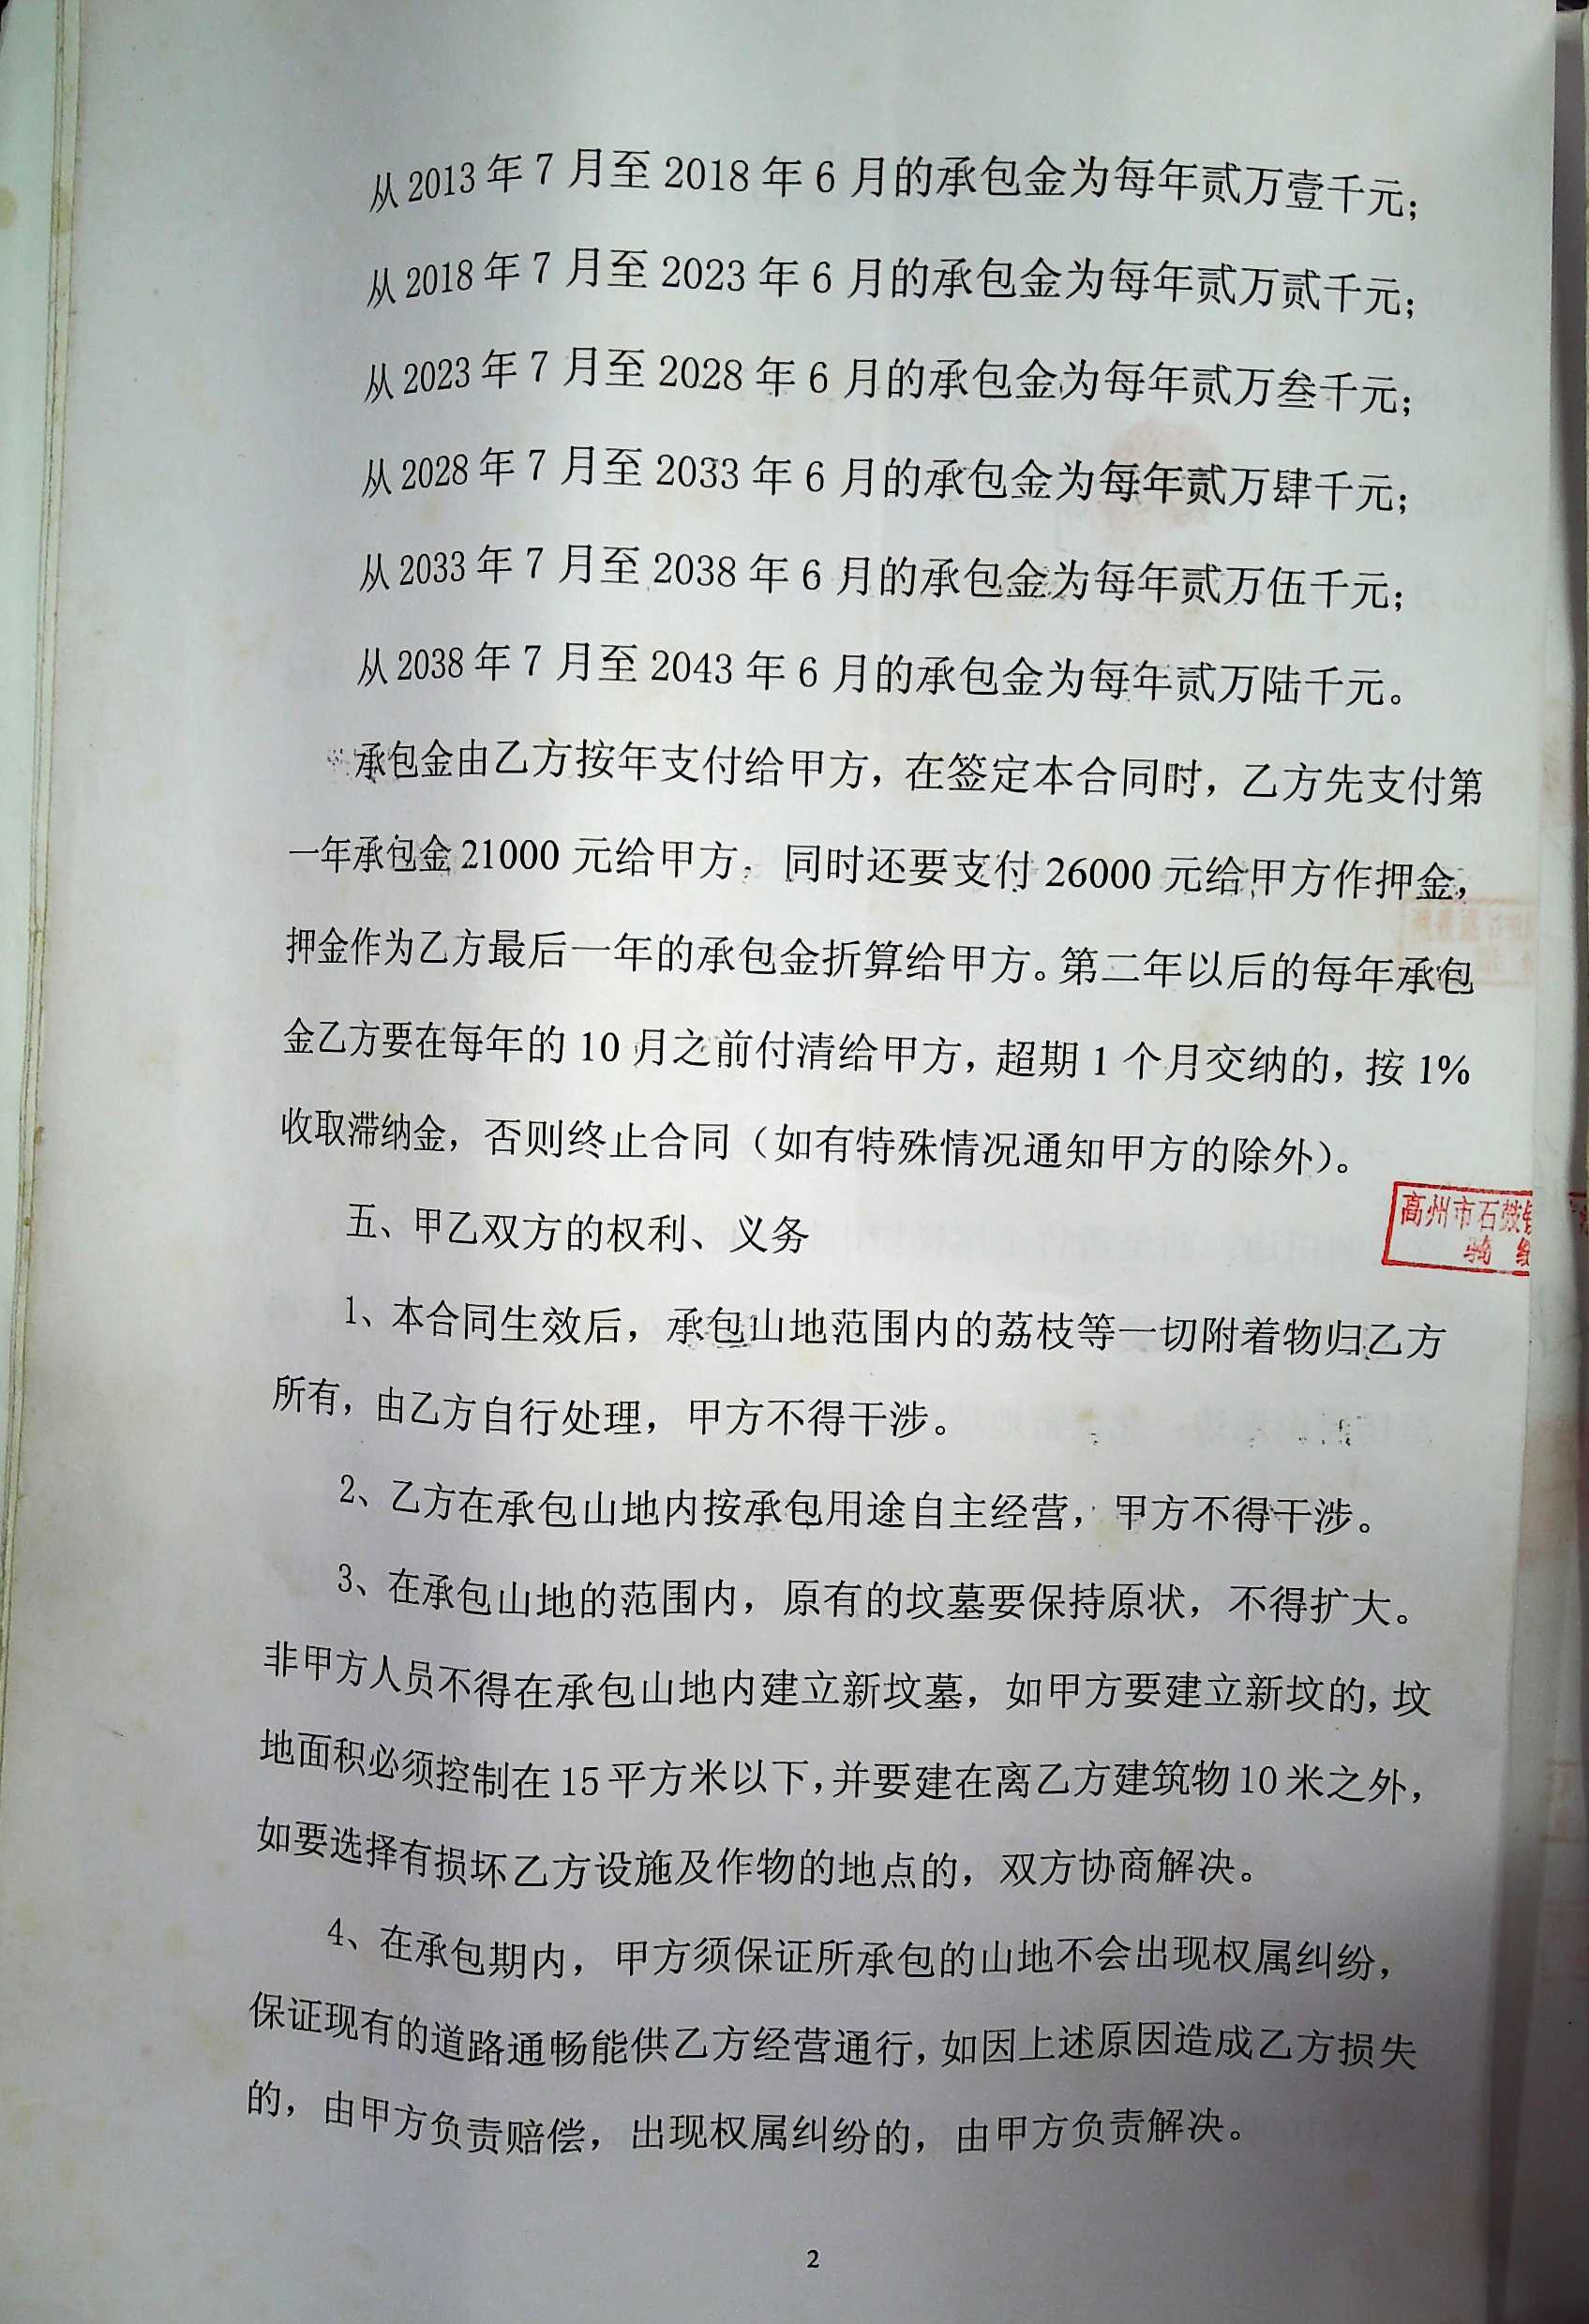 从2013年7月至2018年6月的承包金为每年贰万壹千元；
从2018年7月至2023年6月的承包金为每年贰万贰千元；
从2023年7月至2028年6月的承包金为每年贰万叁千元；
从2028年7月至2033年6月的承包金为每年贰万肆千元；
从2033年7月至2038年6月的承包金为每年贰万伍千元；
从2038年7月至2043年6月的承包金为每年贰万陆千元。
承包金由乙方按年支付给甲方，在签定本合同时，乙方先支付第
一年承包金21000元给甲方，同时还要支付26000元给甲方作押金，
押金作为乙方最后一年的承包金折算给甲方。第二年以后的每年承包
金乙方要在每年的10月之前付清给甲方，超期1个月交纳的，按1%
收取滞纳金，否则终止合同（如有特殊情况通知甲方的除外）。
高州市石鼓
骑
五、甲乙双方的权利、义务
1、本合同生效后，承包山地范围内的荔枝等一切附着物归乙方
所有，由乙方自行处理，甲方不得干涉。
2、乙方在承包山地内按承包用途自主经营，甲方不得干涉。
3、在承包山地的范围内，原有的坟墓要保持原状，不得扩大。
非甲方人员不得在承包山地内建立新坟墓，如甲方要建立新坟的，坟
地面积必须控制在15平方米以下，并要建在离乙方建筑物10米之外，
如要选择有损坏乙方设施及作物的地点的，双方协商解决。
4、在承包期内，甲方须保证所承包的山地不会出现权属纠纷，
保证现有的道路通畅能供乙方经营通行，如因上述原因造成乙方损失
的，由甲方负责赔偿，出现权属纠纷的，由甲方负责解决。
2